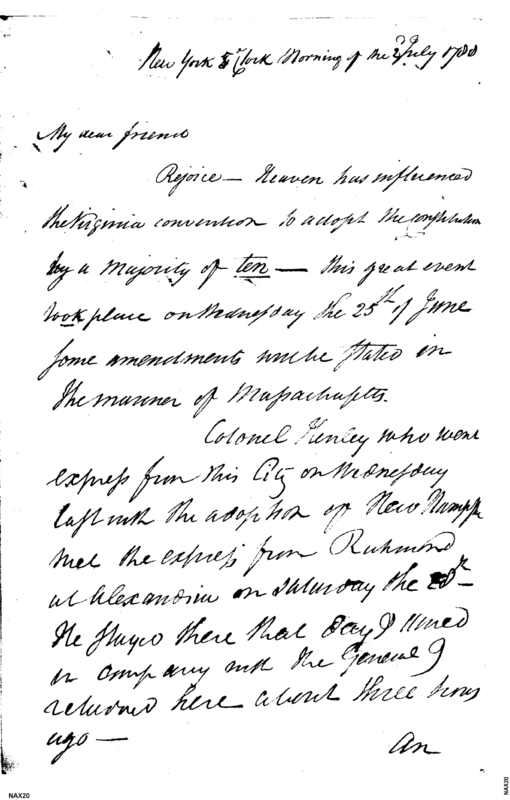 New York 5 oClock Morning of the 2d July 1788
My dear friend
Rejoice — Heaven has influenced
the Virginia convention to adopt the constitution
by a majority of ten — this great event
took place on Wednesday the 25th of June
Some amendments will be stated in
the manner of Massachusetts.
Colonel Henley who went
express from this City on Wednesday
last with the adoption of New Hampse
met the express from Richmond
at Alexandria on Saturday the 28th —
He stayed there that day & dined
in company with the General &
returned here about three hours
ago —
An
NAX20
NAX20